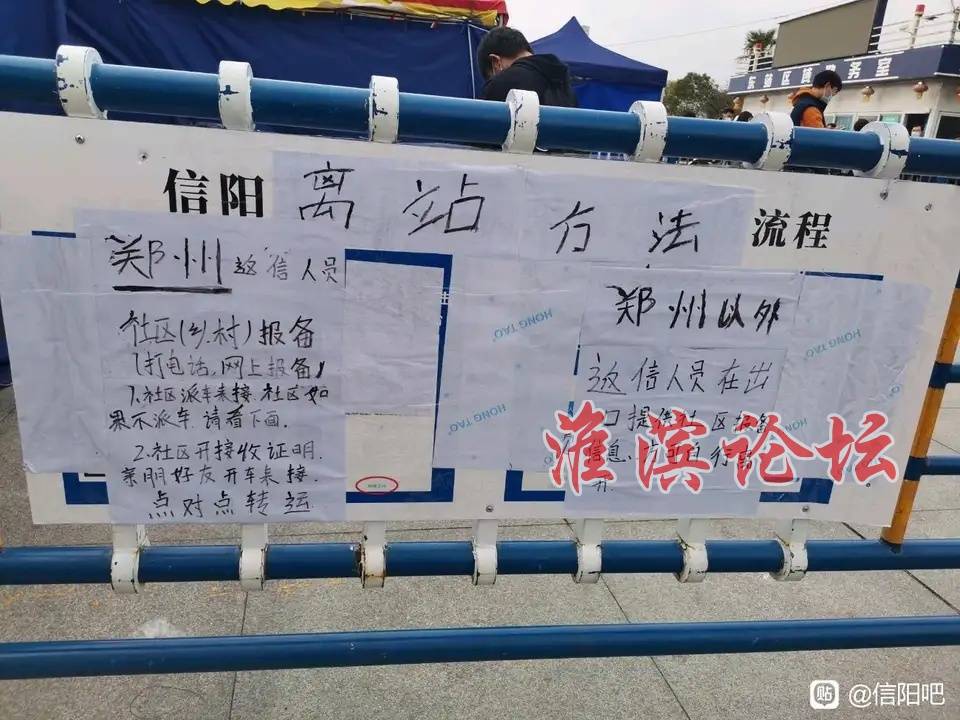 信阳 离站方法 流程
郑州返信人员
社区(乡.村)报备
(打电话,网上报备)
1.社区派车来接.社区如
果不派车.请看下面.
2.社区开接收证明.
亲朋好友开车来接.
点对点转运
郑州以外
返信人员在出
口提供社区报备
信息、方可自行离
开.
HONG TAO
HONG TAO
HONG TAO
HONG TAO
淮滨论坛
贴 @信阳吧